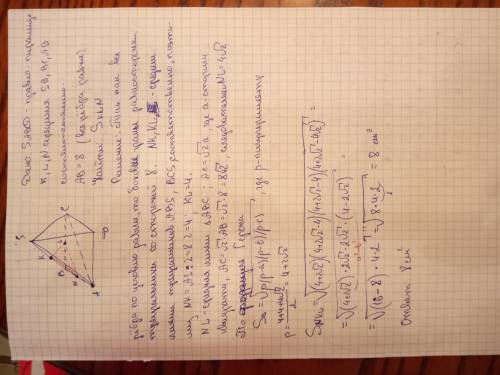 Дано: SABCD - правил. пирамида
K, L, N середины SB, BC, AB
соответственно
AB = 8 (все ребра равны)
Найти: S KLN
Решение: Так как все
ребра по условию равны, то боковые грани равносторонние
треугольники со стороной 8. NK, KL - средние
линии треугольников ABS, BCS, соответственно, поэто-
му NK = AS:2 = 8:2 = 4; KL = 4.
NL - средняя линия △ABC; AC = √2a, где a - сторона
квадрата, AC = √2·AB = √2·8 = 8√2, следовательно NL = 4√2
По формуле Герона
S△ = √p(p-a)(p-b)(p-c), где p - полупериметр
p = 4+4+4√2 / 2 = 4+2√2
S NKL = √(4+2√2)(4+2√2-4)(4+2√2-4)(4+2√2-4√2) =
= √(4+2√2)·2√2·2√2·(4-2√2) =
= √(16-8)·4·2 = √8·4·2 = 8 см²
Ответ: 8 см²
S
K
B
L
C
N
A
D